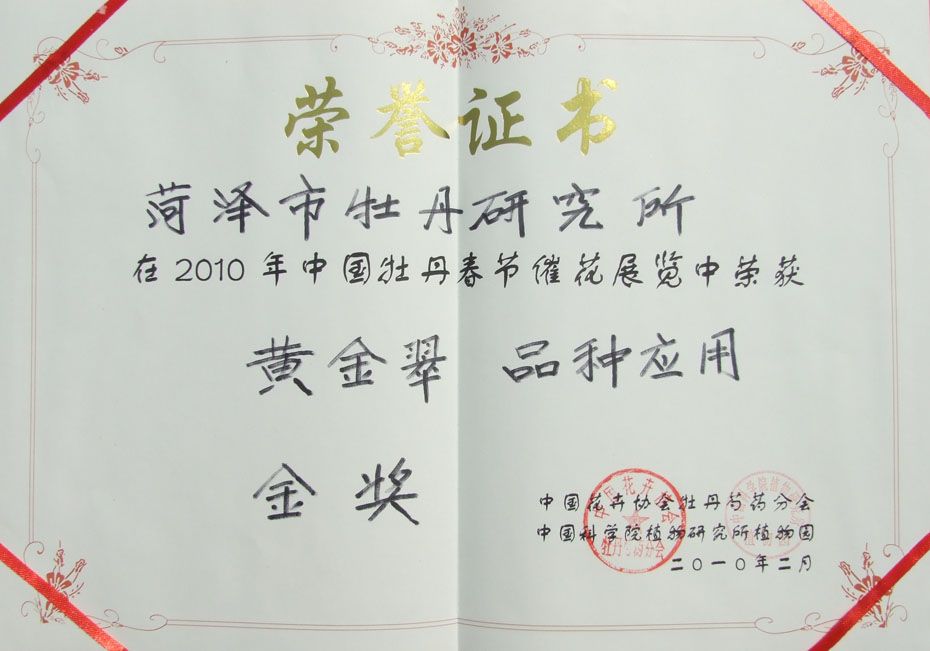 荣誉证书
菏泽市牡丹研究所
在2010年中国牡丹春节催花展览中荣获
黄金翠 品种应用
金奖
中国花卉协会牡丹芍药分会
中国科学院植物研究所植物园
二〇一〇年二月
中国花卉协会
牡丹芍药分会